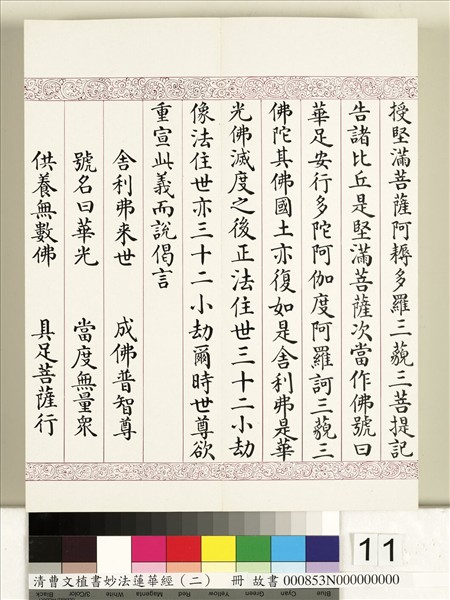 授堅滿菩薩阿耨多羅三藐三菩提記
告諸比丘是堅滿菩薩次當作佛號曰
華足安行多陀阿伽度阿羅訶三藐三
佛陀其佛國土亦復如是舍利弗是華
光佛滅度之後正法住世三十二小劫
像法住世亦三十二小劫爾時世尊欲
重宣此義而說偈言
舍利弗來世 成佛普智尊
號名曰華光 當度無量衆
供養無數佛 具足菩薩行
11
清曹文植書妙法蓮華經（二） 冊 故書 000853N000000000
Black 3/Color White Magenta Red Yellow Green Cyan Blue